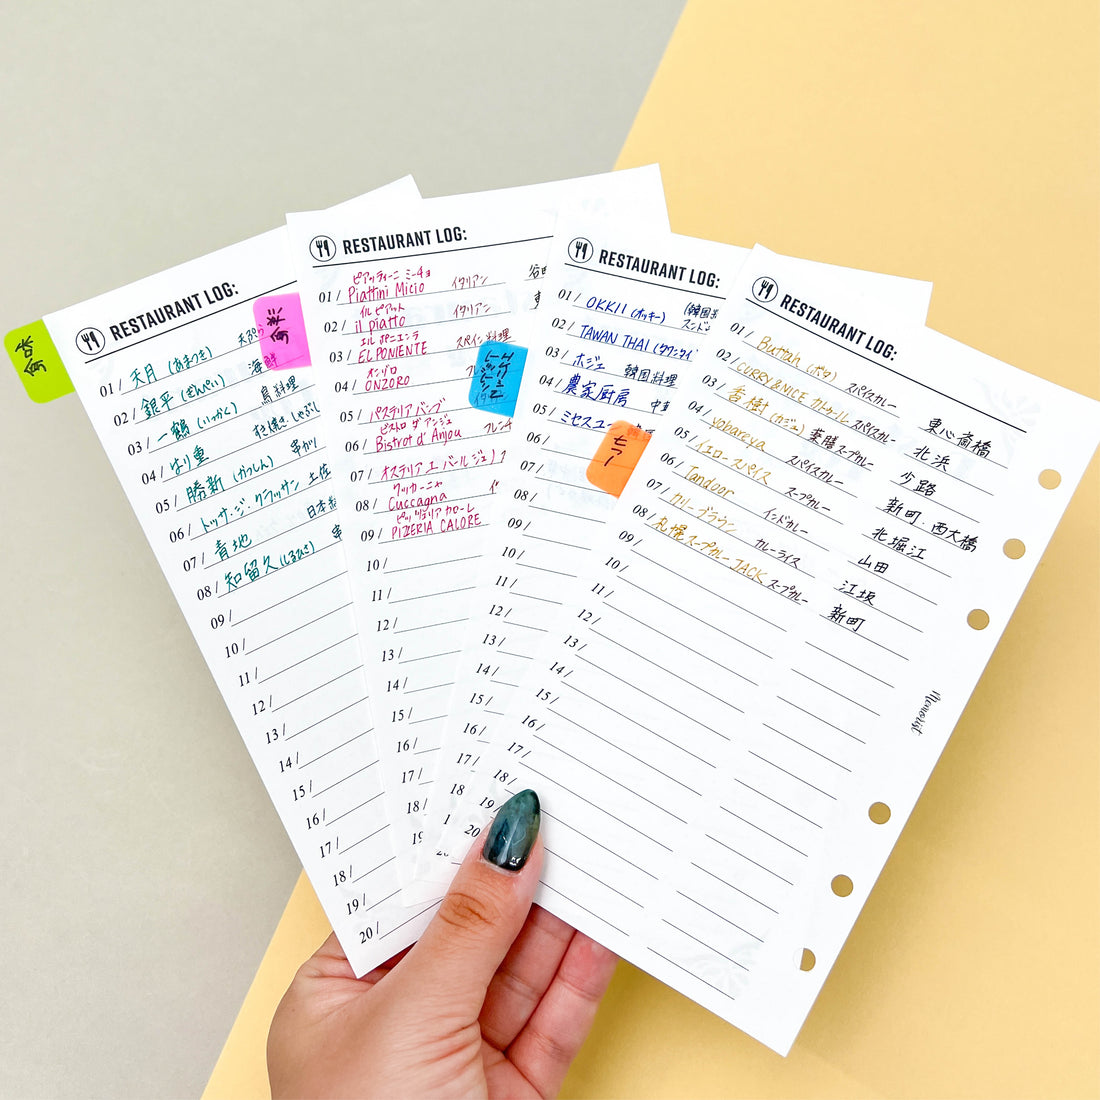 和食
RESTAURANT LOG:
01/ 天月（あまつき） 天ぷら
02/ 銀平（ぎんぺい） 海鮮
03/ 一鶴（いっかく） 鳥料理
04/ はり重 すき焼き・しゃぶし
05/ 勝新（かっしん） 串かつ
06/ トッサ・ジ・クラッサン 土佐
07/ 青地 日本
08/ 知留久（しるひさ） 串
09/
10/
11/
12/
13/
14/
15/
16/
17/
18/
19/
20/
洋食
RESTAURANT LOG:
ピアッティーニ ミーチョ
01/ Piattini Micio イタリアン
イル ピアット
02/ il piatto イタリアン
エル ポニエンテ
03/ EL PONIENTE スペイン料理
オンゾロ
04/ ONZORO
05/ パステリア バンブ
ビストロ ダ アンジュ
06/ Bistrot d' Anjou フレンチ
07/ オステリア エ バール ジェ
クッカーニャ
08/ Cuccagna
ピッツェリア カローレ
09/ PIZZERIA CALORE
10/
11/
12/
13/
14/
15/
16/
17/
18/
19
RESTAURANT LOG:
01/ OKKII（オッキー） （韓国
スンド
02/ TAWAN THAI（タワンタイ
03/ ホジェ 韓国料理
04/ 農家厨房 中
05/ ミセスユ
06/
07/
08/
09/
10/
11/
12/
13/
14/
15/
16/
17/
18
カレー
RESTAURANT LOG:
01/ Buttah（ボタ） スパイスカレー 東心斎橋
02/ CURRY&NICE カトゥール スパイスカレー 北浜
03/ 香樹（カジュ） 薬膳スープカレー 少路
04/ yobareya スパイスカレー 新町・西大橋
05/ イエロースパイス スープカレー 北堀江
06/ Tandoor インドカレー 山田
07/ カリーブラウン カレーライス 江坂
08/ 札幌スープカレー JACK スープカレー 新町
09/
10/
11/
12/
13/
14/
15/
16/
17/
18/
19/
20/
Memorist